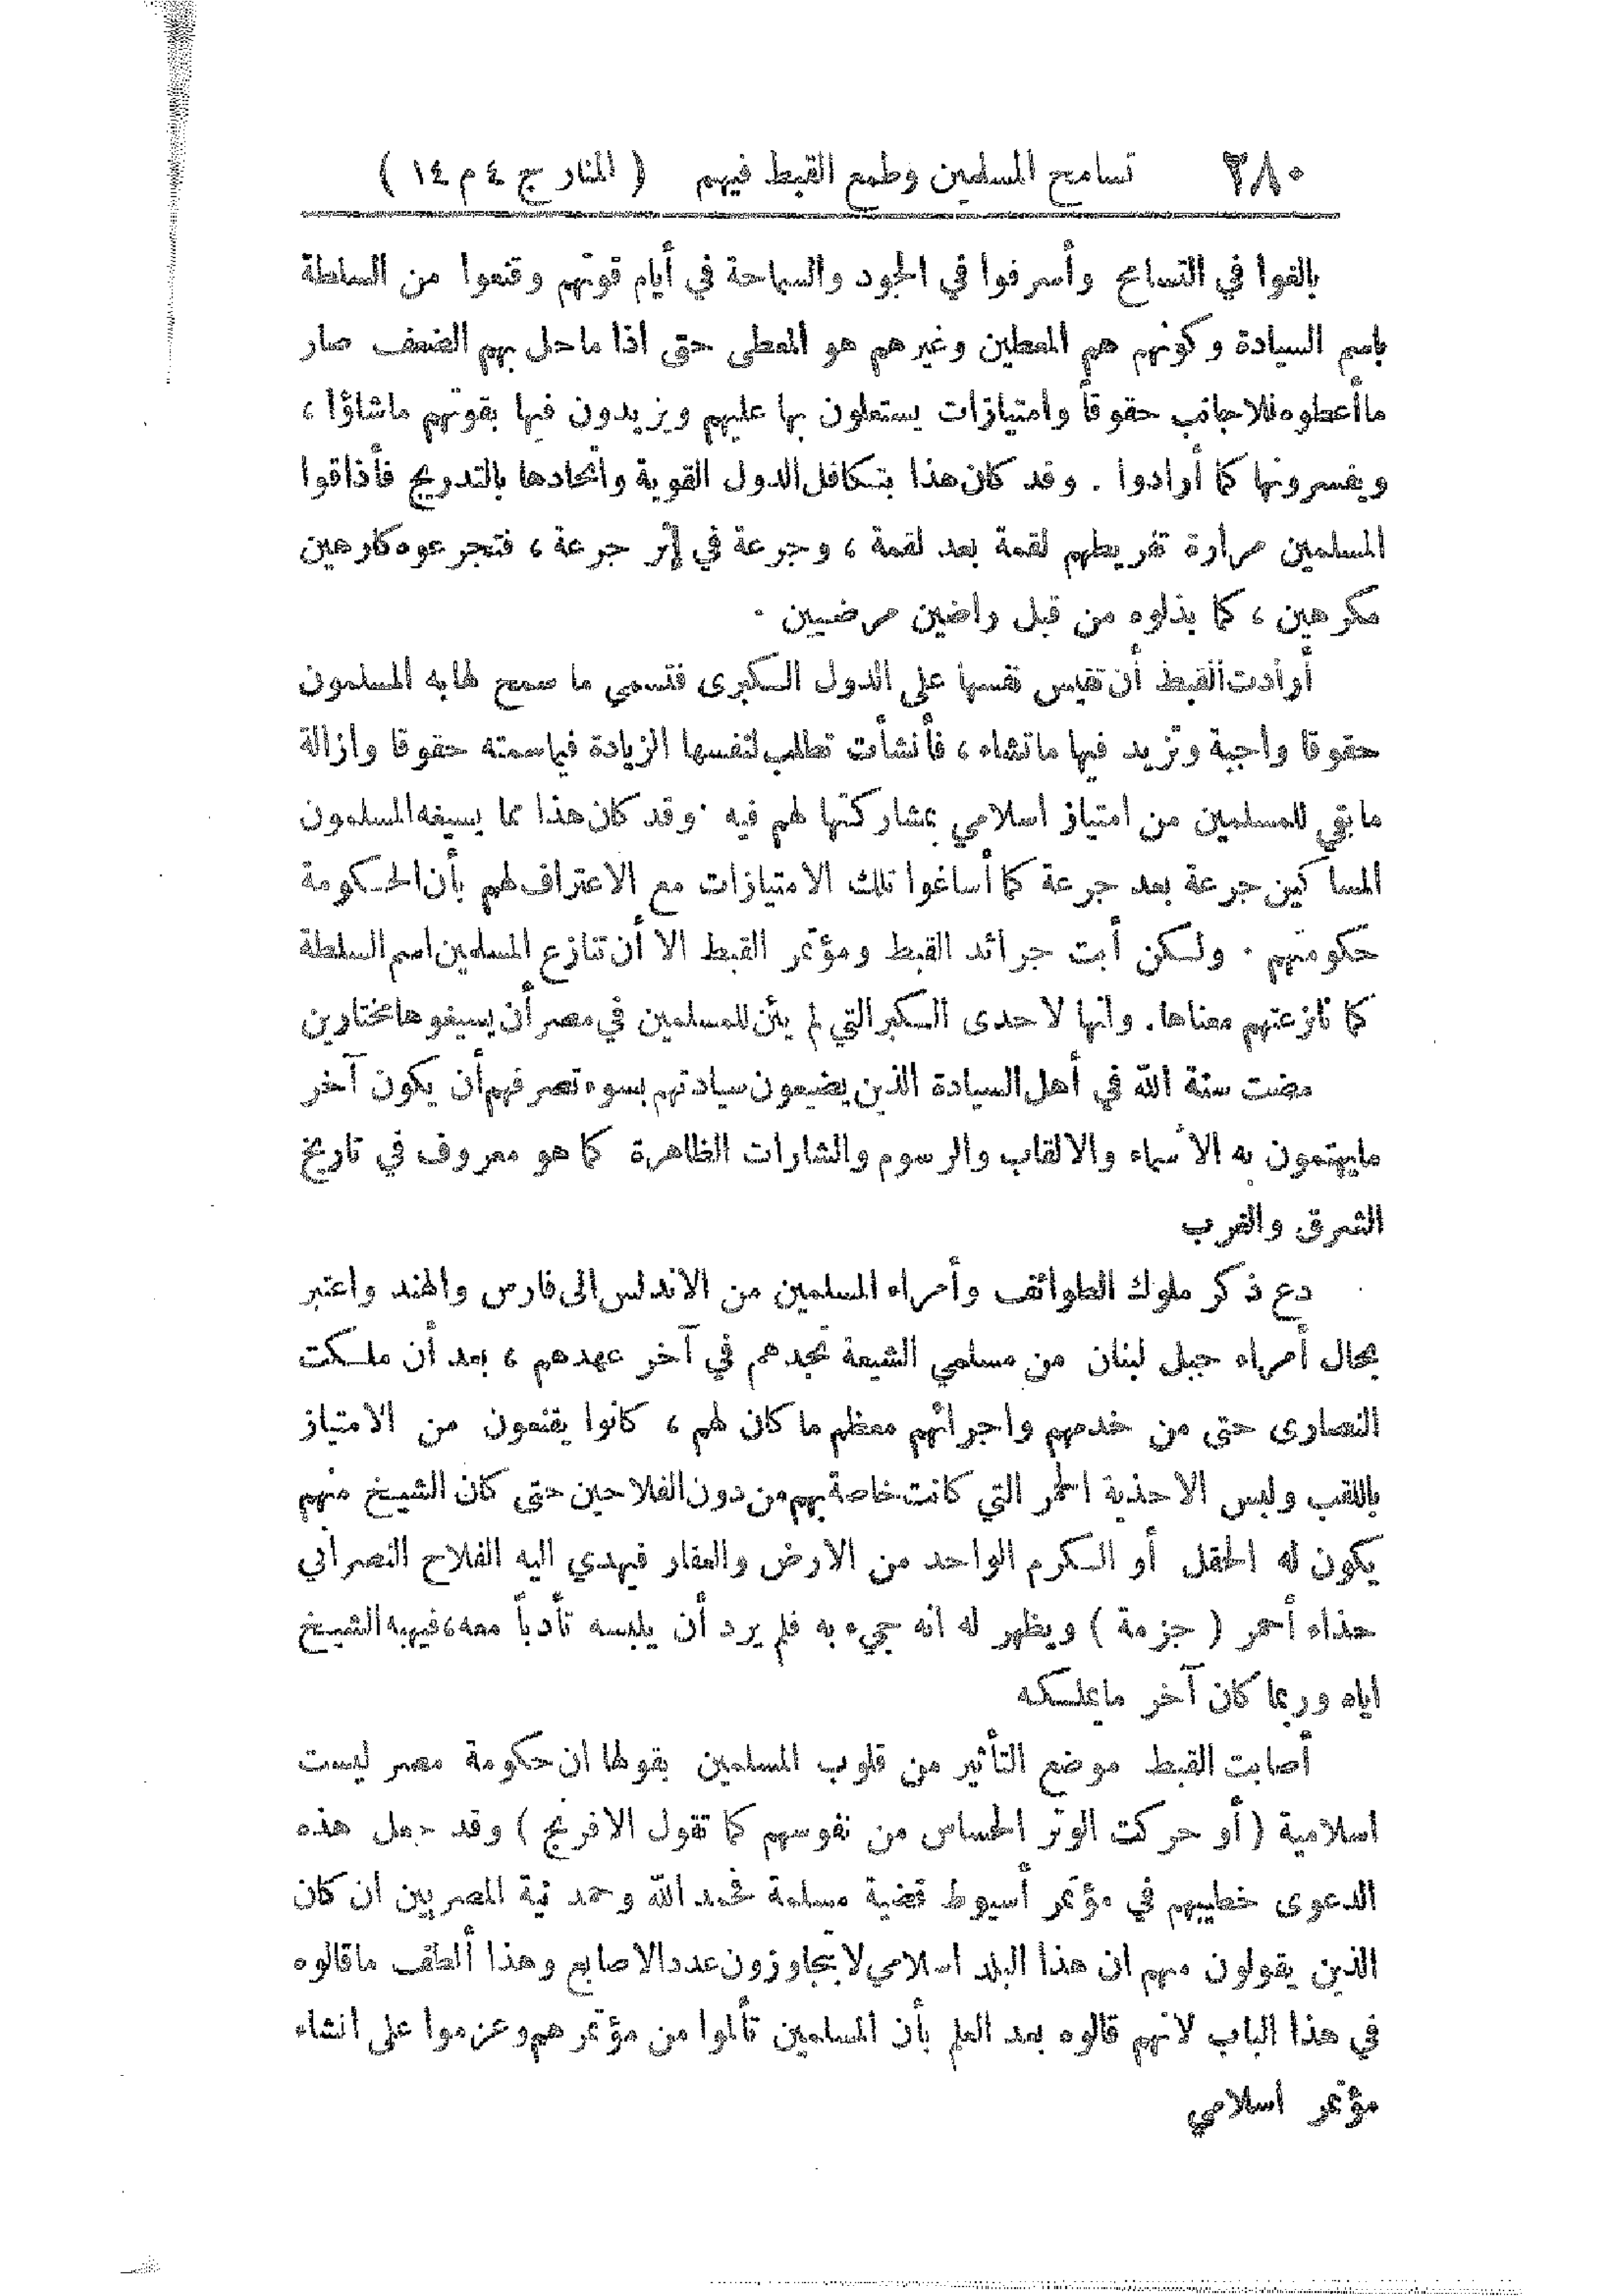 ٢٨٠ تسامح المسلمين وطمع القبط فيهم ( المنار ج ٤ م ١٤ )
بالغوا في التسامح وأسرفوا في الجود والسماحة في أيام قوتهم وقنعوا من السلطة
باسم السيادة وكونهم هم المعطين وغيرهم هو المعطى حتى اذا ما حل بهم الضعف صار
ما أعطوه للاجانب حقوقاً وامتيازات يستعلون بها عليهم ويزيدون فيها بقوتهم ماشاؤا ،
ويفسرونها كما أرادوا . وقد كان هذا بتكافل الدول القوية واتحادها بالتدريج فأذاقوا
المسلمين مرارة تفريطهم لقمة بعد لقمة ، وجرعة في إثر جرعة ، فتجرعوه كارهين
مكرهين ، كما بذلوه من قبل راضين مرضيين .
أرادت القبط أن تقيس نفسها على الدول الكبرى فتسمي ما سمح لها به المسلمون
حقوقا واجبة وتزيد فيها ماتشاء ، فأنشأت تطلب لنفسها الزيادة فيما سمته حقوقا وازالة
ما بقي للمسلمين من امتياز اسلامي بمشاركتها لهم فيه . وقد كان هذا مما يسيغه المسلمون
المساكين جرعة بعد جرعة كما أساغوا تلك الامتيازات مع الاعتراف لهم بأن الحكومة
حكومتهم . ولكن أبت جرائد القبط ومؤتمر القبط الا أن تنازع المسلمين اسم السلطة
كما نازعتهم معناها . وانها لاحدى الكبر التي لم يئن للمسلمين في مصر أن يسيغوها مختارين
مضت سنة الله في أهل السيادة الذين يضيعون سيادتهم بسوء تصرفهم أن يكون آخر
مايهتمون به الأسماء والالقاب والرسوم والشارات الظاهرة كما هو معروف في تاريخ
الشرق والغرب
دع ذكر ملوك الطوائف وأمراء المسلمين من الاندلس الى فارس والهند واعتبر
بحال أمراء جبل لبنان من مسلمي الشيعة تجدهم في آخر عهدهم ، بعد أن ملكت
النصارى حتى من خدمهم واجرائهم معظم ما كان لهم ، كانوا يقنعون من الامتياز
باللقب ولبس الاحذية الحمر التي كانت خاصة بهم من دون الفلاحين حتى كان الشيخ منهم
يكون له الحقل أو الكرم الواحد من الارض والعقار فيهدي اليه الفلاح النصراني
حذاء أحمر ( جزمة ) ويظهر له انه جيء به فلم يرد أن يلبسه تأدباً معه ، فيهبه الشيخ
اياه وربما كان آخر مايملكه
أصابت القبط موضع التأثير من قلوب المسلمين بقولها ان حكومة مصر ليست
اسلامية ( أو حركت الوتر الحساس من نفوسهم كما تقول الافرنج ) وقد جعل هذه
الدعوى خطيبهم في مؤتمر أسيوط قضية مسلمة فحمد الله وحمد نية المصريين ان كان
الذين يقولون منهم ان هذا البلد اسلامي لا يتجاوزون عدد الاصابع وهذا ألطف ماقالوه
في هذا الباب لانهم قالوه بعد العلم بأن المسلمين تألموا من مؤتمرهم وعزموا على انشاء
مؤتمر اسلامي